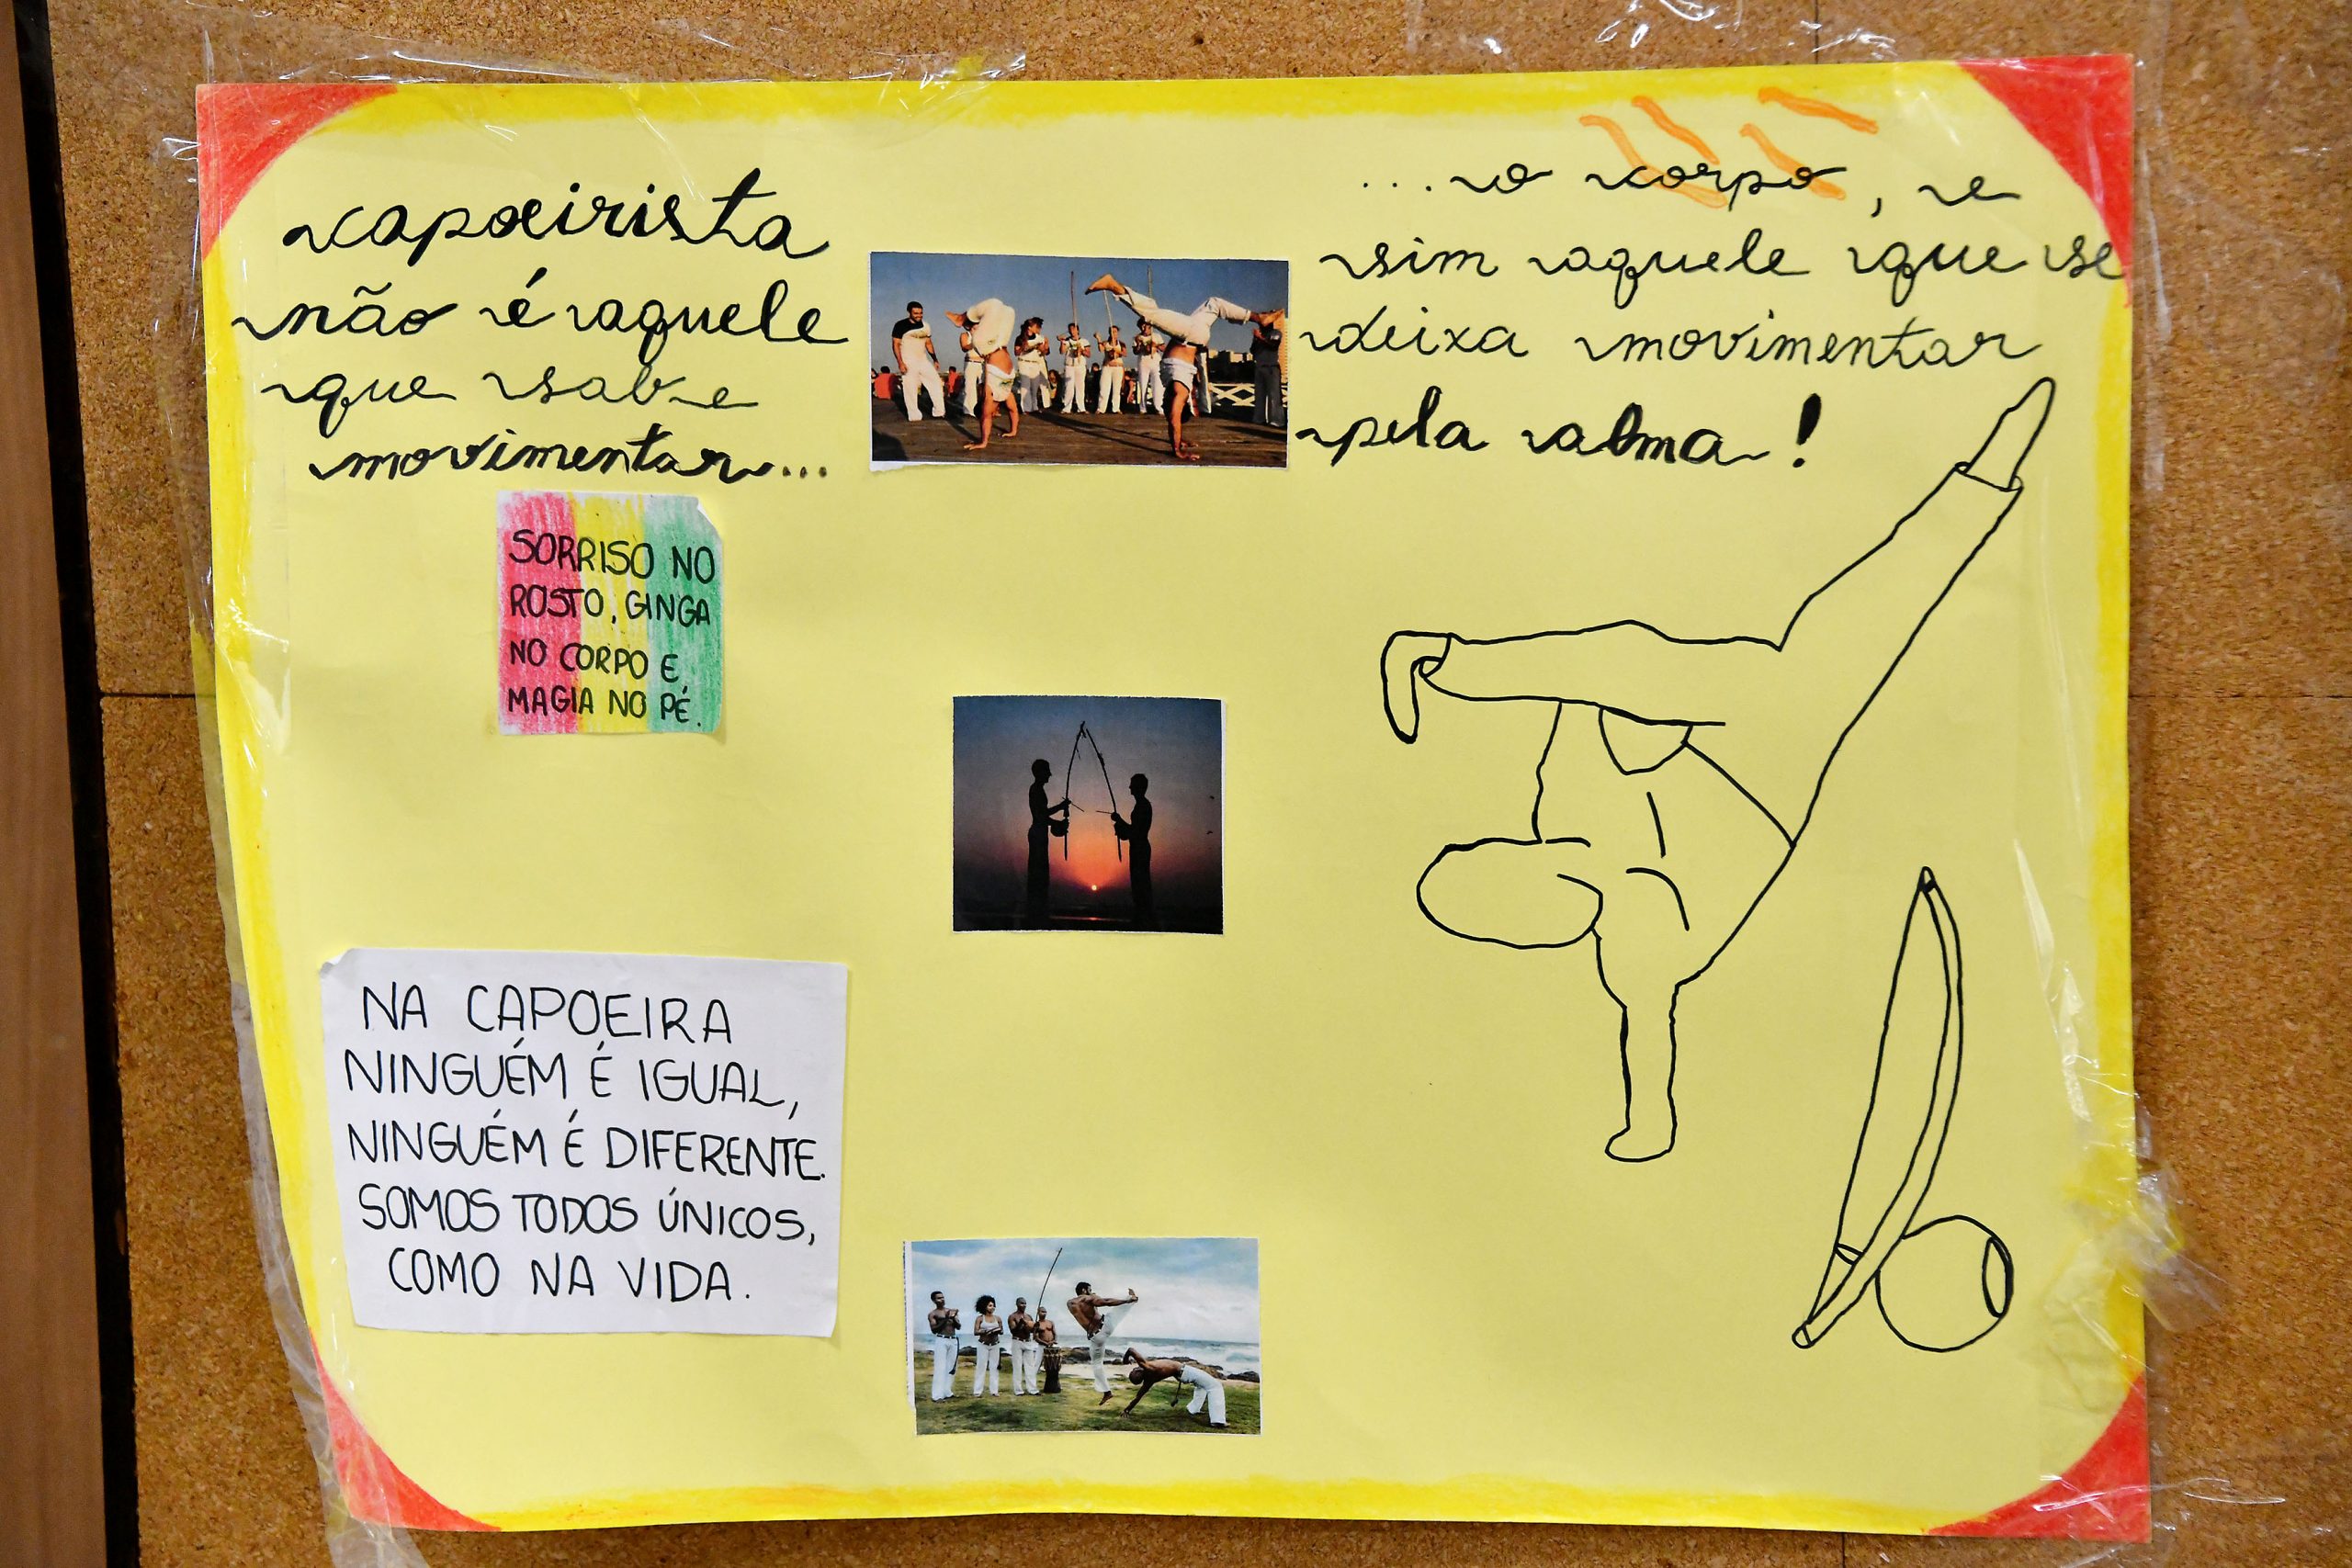 capoeirista
não é aquele
que sabe
movimentar...
...o corpo, e
sim aquele que se
deixa movimentar
pela alma!
SORRISO NO
ROSTO, GINGA
NO CORPO E
MAGIA NO PÉ.
NA CAPOEIRA
NINGUÉM É IGUAL,
NINGUÉM É DIFERENTE.
SOMOS TODOS ÚNICOS,
COMO NA VIDA.